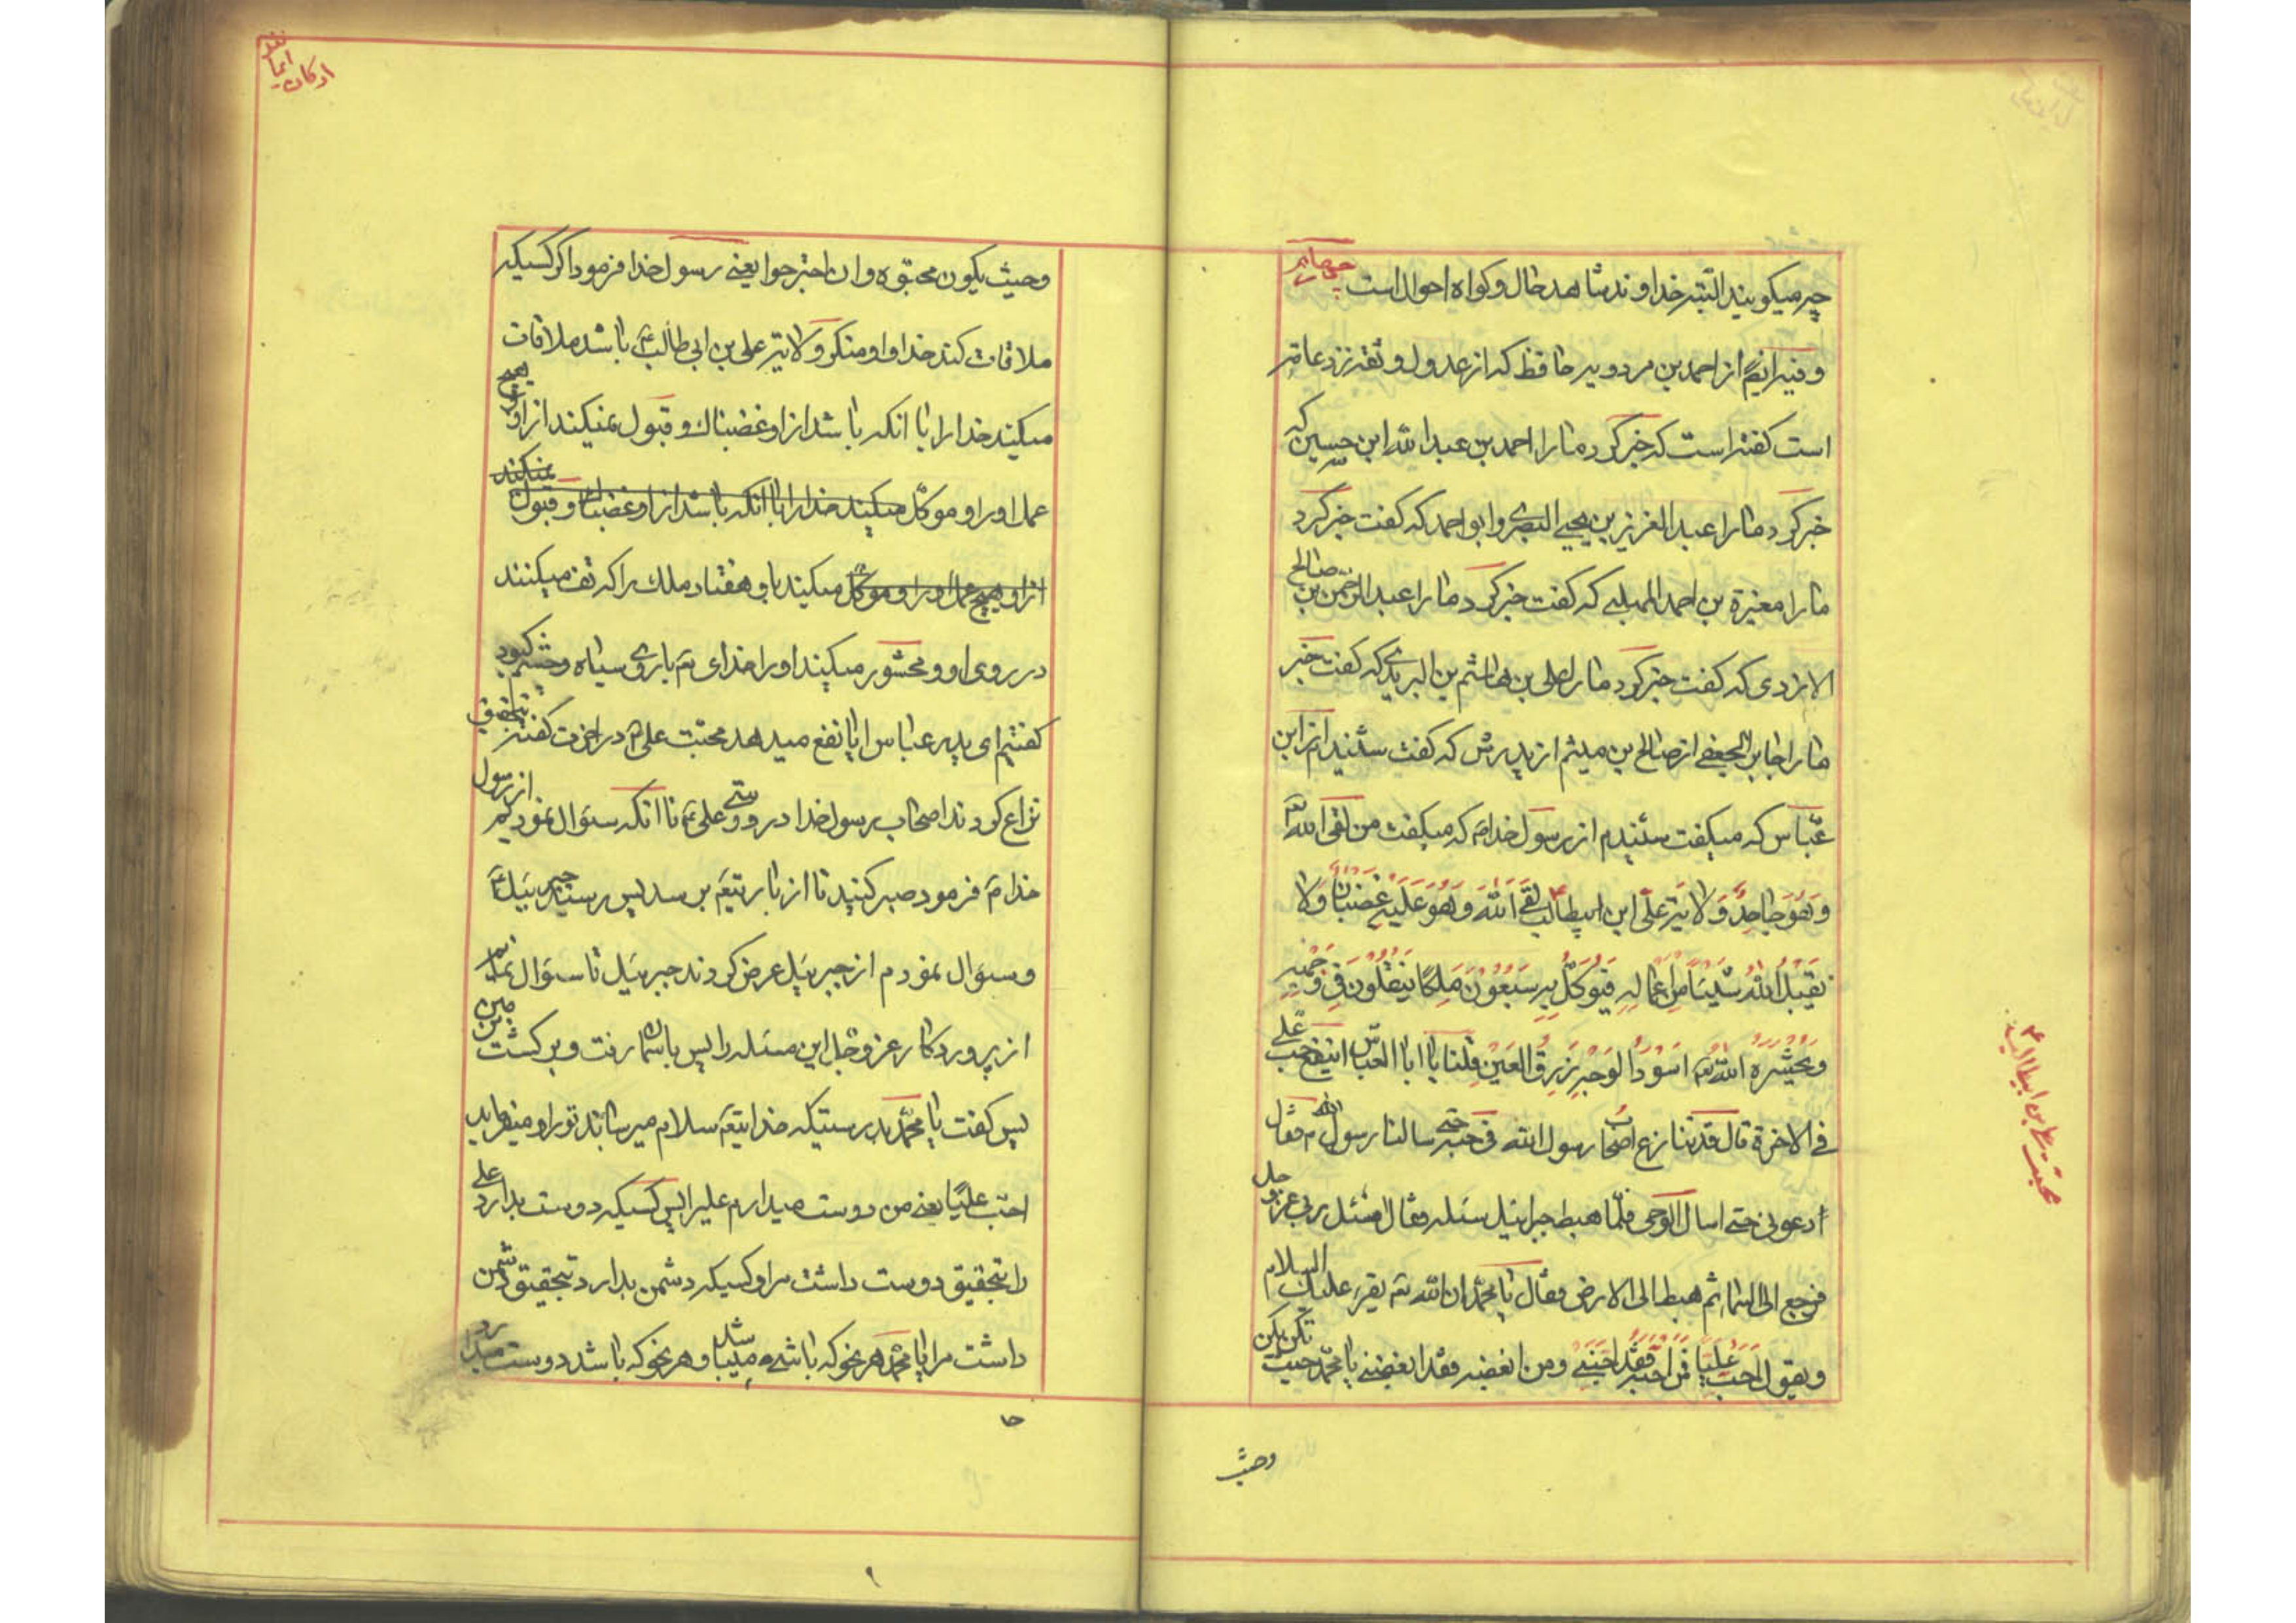 چه میگویند البته خداوند شاهد حال و کواه احوال است
و نیز ایضا از احمد بن مردویه حافظ که از عدول و ثقه نزد عامه
است کفته است که خبر کرد ما را احمد بن عبدالله ابن حسین که
خبر کرد ما را عبد العزیز بن یحیی البصری و ابو احمد که کفت خبر کرد
ما را مغیرة بن احمد المهلبی که کفت خبر کرد ما را عبد الرحمن بن صالح
الازدی که کفت خبر کرد ما را علی بن هاشم بن البریدی که کفت خبر
ما را جابر الجعفی از صالح بن میثم از پدرش که کفت شنیدم از ابن
عباس که میکفت شنیدم از رسول خدا که میکفت من لقی الله
وَهُوَ جاحِدٌ وَلایَة علی ابن ابیطالب لقی الله وهو علیه غضبان ولا
یقبل الله شیئا من اعماله فیوکل به سبعون ملکا یتفلون فی وجهه
ویحشره الله تعه اسود الوجه زرق العین قلنا یا ابا العباس اینفع حب علی
فی الاخرة قال قد تنازع اصحاب رسول الله فی حبه حتی سالنا رسول الله فقال
ادعونی حتی اسال الوحی فلما هبط جبرائیل سئله فقال اسئل ربی عز و جل
فرجع الی السماء ثم هبط الی الارض فقال یا محمد ان الله تعه یقرء علیک السلام
ویقول احب علیا فمن احبه فقد احبنی ومن ابغضه فقد ابغضنی یا محمد حیث تکن یکن
وحیث
محبت علی ابن ابیطالب
ارکان ایمان
وحیث یکون محبوه وان اجترحوا یعنی رسول خدا فرمود اکر کسیکه
ملاقات کند خدا و او منکر ولایت علی بن ابی طالب باشد ملاقات
میکند خدا را با انکه باشد از او غضبناک و قبول نمیکند از او هیچ
عمل او را و موکل میکیند خدا را با انکه باشد از او غضبناک و قبول نمیکند
از او هیچ عمل او را و موکل میکیند باو هفتاد ملک را که تف میکنند
در روی او و محشور میکیند او را خدای تعه باروی سیاه و چشم کبود
کفتیم ای پدر عباس ایا نفع میدهد محبت علی در اخرت کفت بتحقیق
نزاع کردند اصحاب رسول خدا در دوستی علی تا انکه سئوال نمودیم از رسول
خدا فرمود صبر کنید تا از باریتعه بر سد پس رسید جبرئیل
وسئوال نمودم از جبرئیل عرض کردند جبرئیل تا سئوال نمایم
از پروردکار عز وجل این مسئله را پس باسمان رفت و بر کشت بزمین
پس کفت یا محمد بدرستیکه خدایتعه سلام میرساند تو را و میفرماید
احب علیا یعنی من دوست میدارم علی را پس کسیکه دوست بدارد علی
را بتحقیق دوست داشت مرا و کسیکه دشمن بدارد بتحقیق دشمن
داشت مرا یا محمد هر نحو که باشی میباشد و هر نحو که باشد دوست میدارد